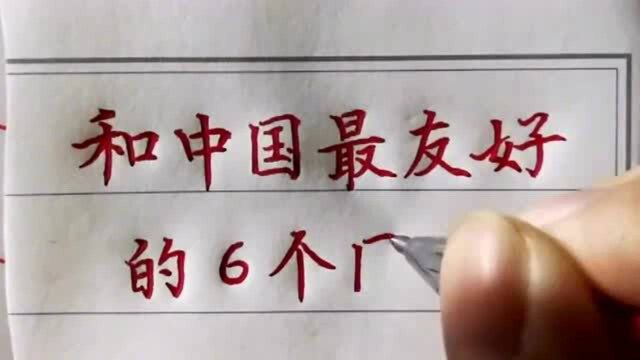 和中国最友好
的6个